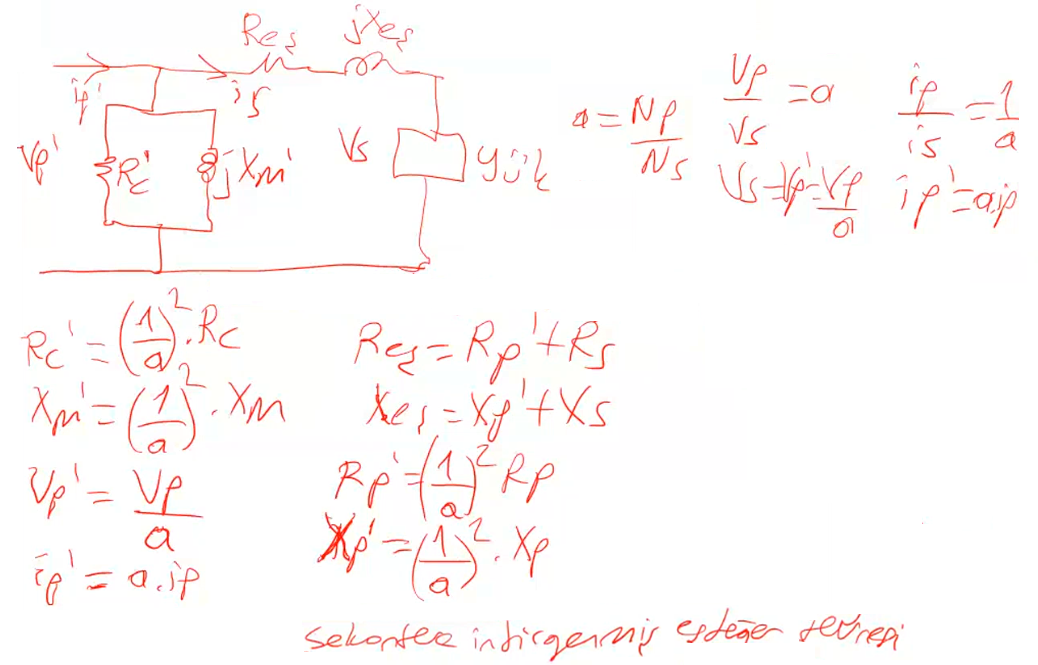 Reş jXeş
ip' is
Vp' Rc' jXm' Vs yük
a = Np/Ns Vp/Vs = a ip/is = 1/a
Vs = Vp' = Vp/a ip' = a.ip
Rc' = (1/a)². Rc
Xm' = (1/a)². Xm
Vp' = Vp/a
ip' = a.ip
Reş = Rp' + Rs
Xeş = Xp' + Xs
Rp' = (1/a)² Rp
Xp' = (1/a)². Xp
sekondere indirgenmiş eşdeğer devresi